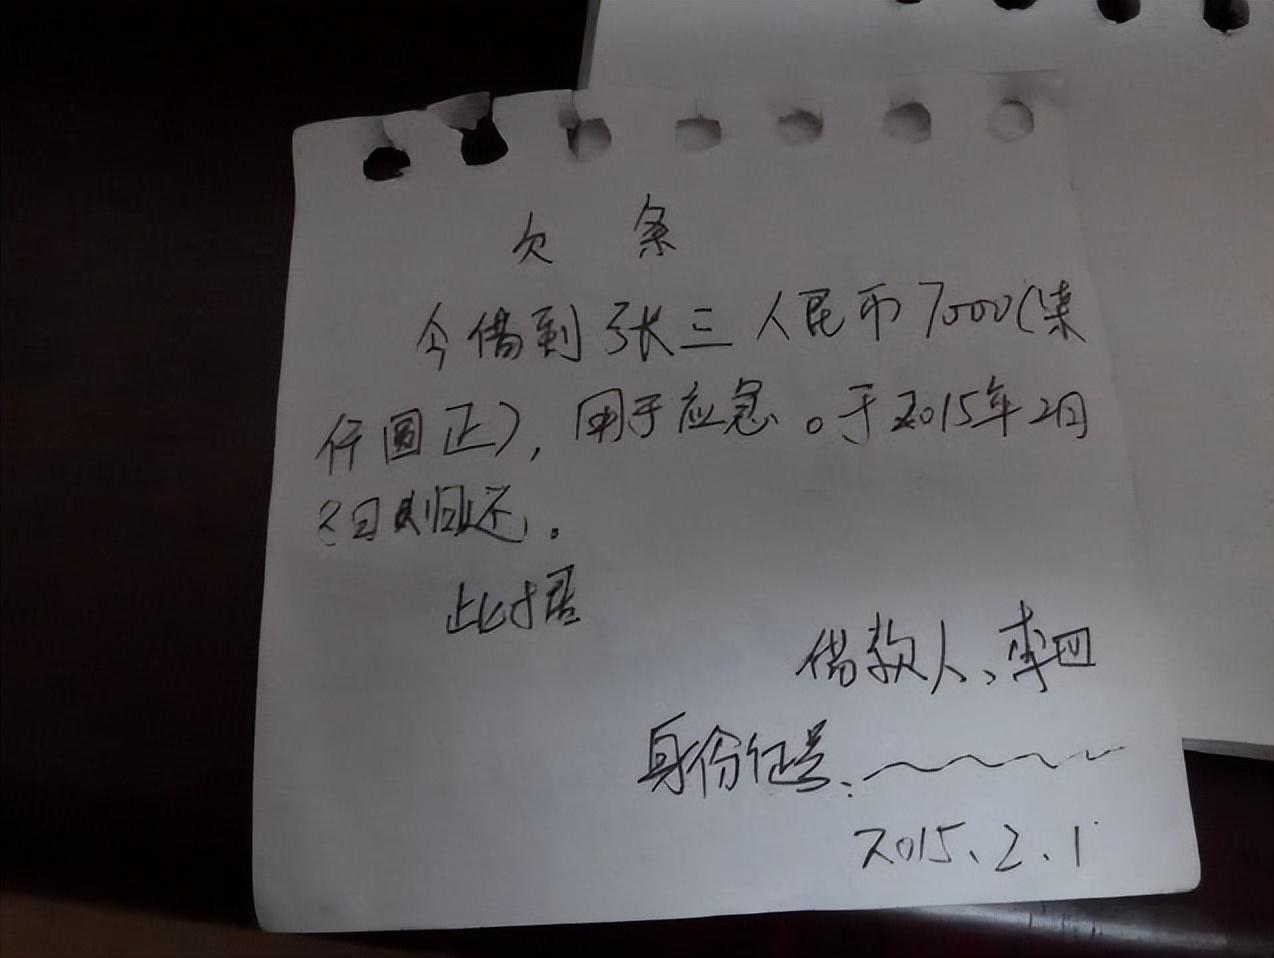 欠 条
今借到张三人民币7000(柒
仟圆正),用于应急。于2015年2月
2日归还。
此据
借款人、李四
身份证号:
2015、2、1